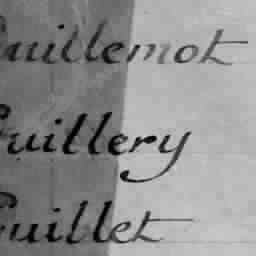 Guillemot
Guillery
Guillet